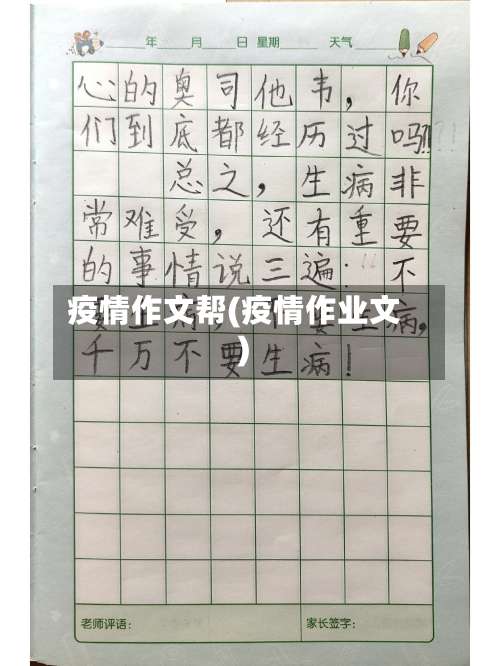 年 月 日 星期 天气
心的奥司他韦，你
们到底都经历过吗!!?!
总之，生病非
常难受，还有重要
的事情说三遍：“不
病，
疫情作文帮(疫情作业文
)
千万不要生病!
老师评语： 家长签字：